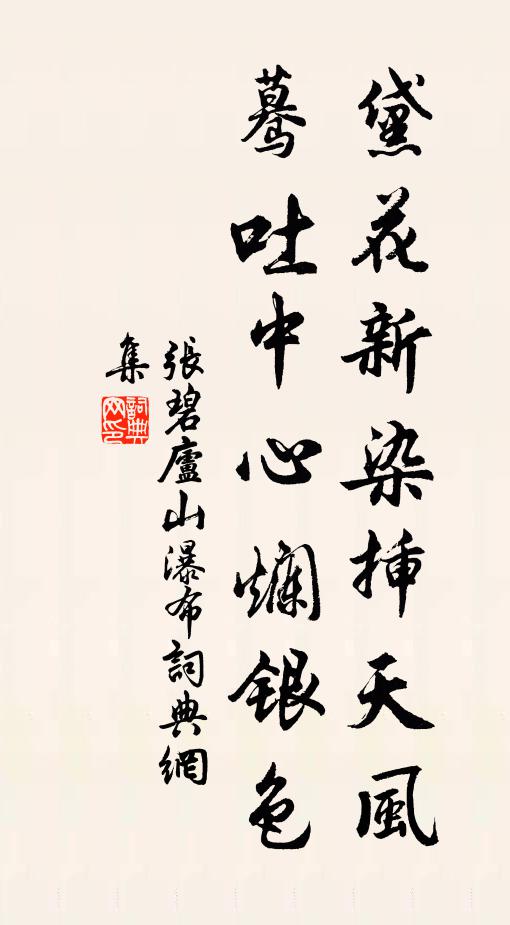 黛花新染插天風
驀吐中心爛銀色
張碧廬山瀑布詞典網
集
詞典
网印